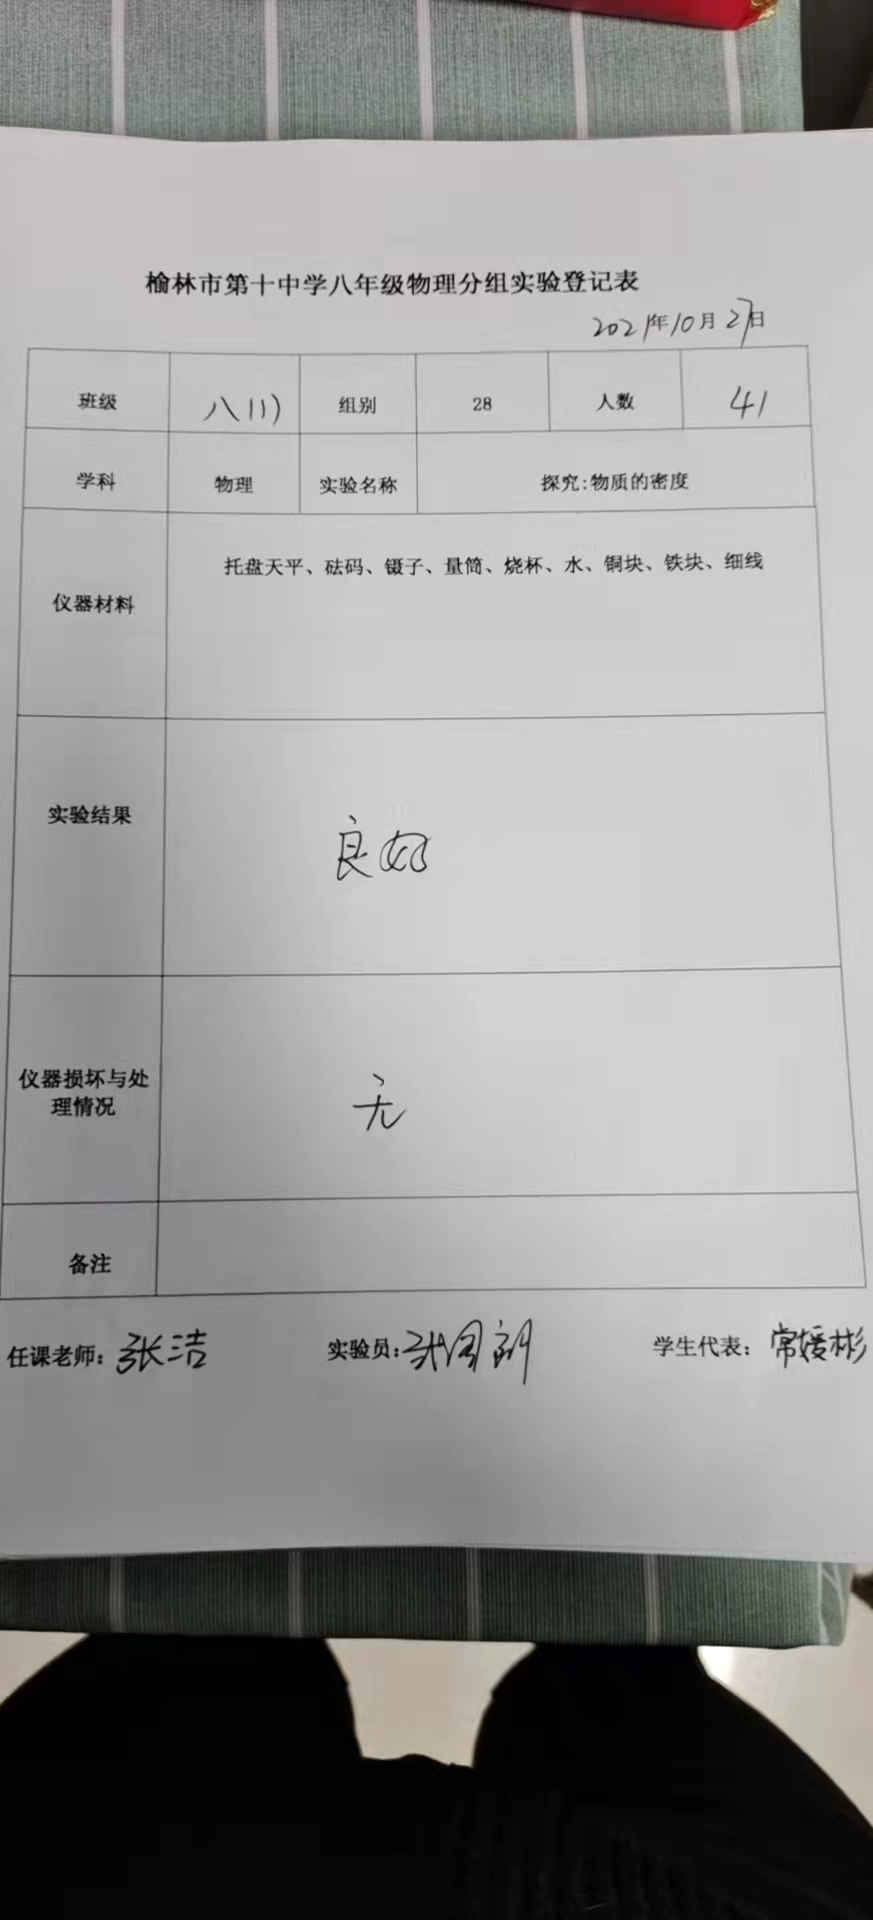 榆林市第十中学八年级物理分组实验登记表
2021年10月27日
班级 八(1) 组别 28 人数 41
学科 物理 实验名称 探究:物质的密度
仪器材料 托盘天平、砝码、镊子、量筒、烧杯、水、铜块、铁块、细线
实验结果 良好
仪器损坏与处
理情况 无
备注
任课老师：张洁 实验员：张 学生代表：常媛彬